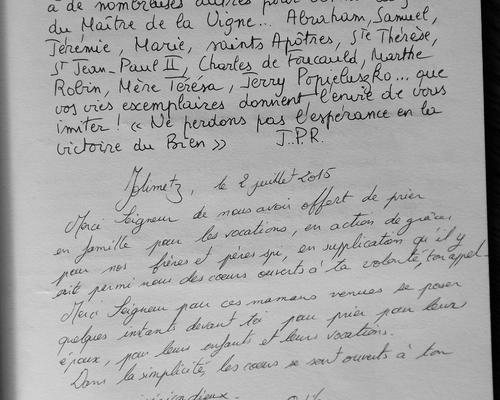 à de nombreuses autres pour
du Maître de la Vigne... Abraham, Samuel,
Jérémie, Marie, saints Apôtres, Ste Thérèse,
St Jean-Paul II, Charles de Foucauld, Marthe
Robin, Mère Térésa, Jerry Popieluszko... que
vos vies exemplaires donnent l'envie de vous
imiter ! « Ne perdons pas l'espérance en la
victoire du Bien » J.P.R.
Jolimetz, le 2 juillet 2015
Merci Seigneur de nous avoir offert de prier
en famille pour les vocations, en action de grâces
pour nos frères et pères spi, en supplication qu'il y
ait parmi nous des cœurs ouverts à ta volonté, ton appel.
Merci Seigneur pour ces mamans venues se poser
quelques instants devant toi pour prier pour leurs
époux, pour leurs enfants et leurs vocations.
Dans la simplicité, les cœurs se sont ouverts à ton